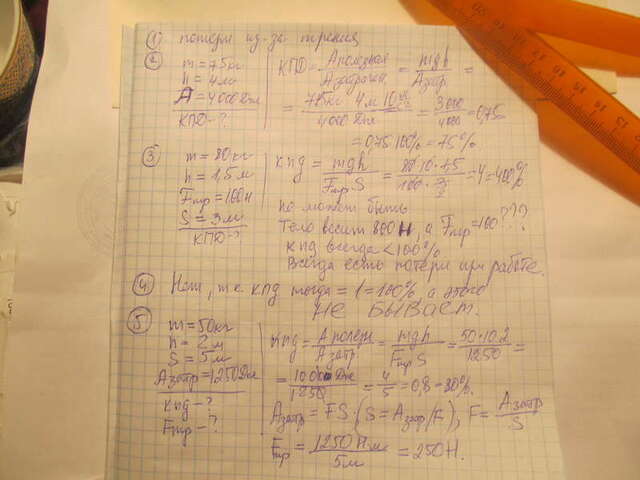 ① потери из-за трения
② m = 75кг
h = 4м
A = 4000Дж
КПД-?
КПД = Аполезная/Азатрачен = mgh/Азатр =
= 75кг 4м 10/4000 Дж = 3000/4000 = 0,75
= 0,75 100% = 75%
③ m = 80кг
h = 1,5м
Fтр = 100Н
S = 3м
КПД-?
кпд = mgh/Fтр S = 80·10·1,5/100·3 = 4 = 400%
не может быть
Тело весит 800Н, а Fтр=100???
кпд всегда <100%
Всегда есть потери при работе.
④ Нет, т.к. кпд тогда = 1 = 100%, а этого
НЕ БЫВАЕТ.
⑤ m = 50кг
h = 2м
S = 5м
Aзатр = 1250Дж
кпд - ?
Fтр - ?
кпд = Аполезн/Азатр = mgh/Fтр S = 50·10·2/1250 =
= 1000Дж/1250 = 4/5 = 0,8 = 80%.
Азатр = FS, (S = Азатр/F), F = Азатр/S
Fтр = 1250 Н·м/5м = 250Н.